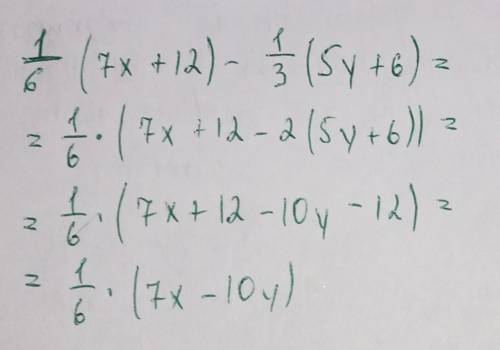 1/6 (7x + 12) - 1/3 (5y + 6) =
= 1/6 · (7x + 12 - 2 (5y + 6)) =
= 1/6 · (7x + 12 - 10y - 12) =
= 1/6 · (7x - 10y)